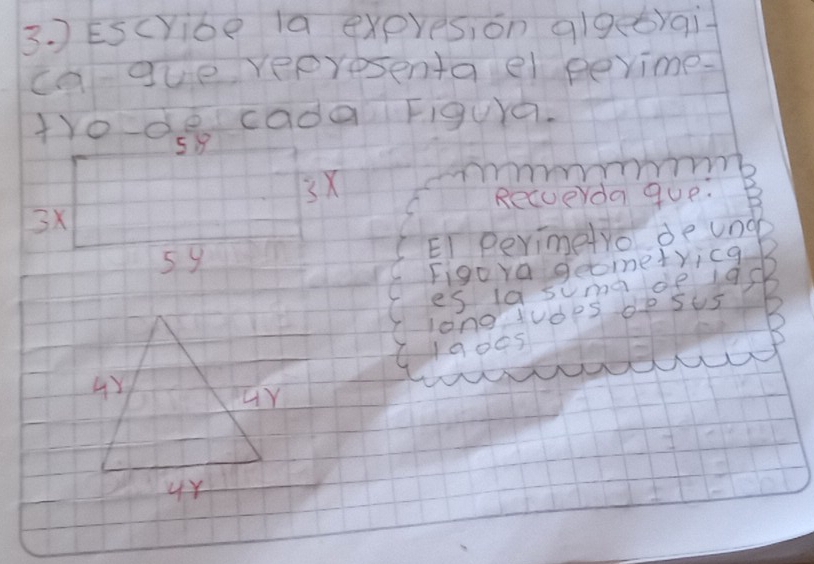 3.) Escribe la expresión algebrai-
ca que representa el perime-
tro de cada Figura.
5y
3x
3x
5y
Recuerda que:
El perimetro de una
Figura geometrica
es la suma de las
longitudes de sus
lados
4r
4r
4r